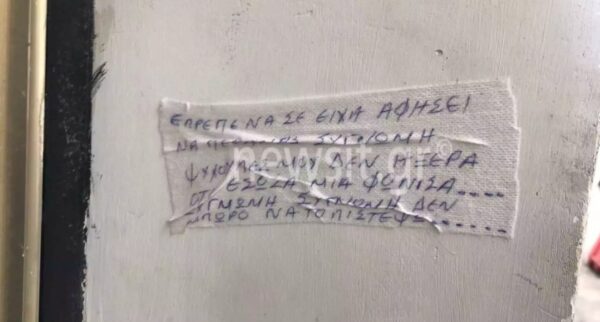 ΕΠΡΕΠΕ ΝΑ ΣΕ ΕΙΧΑ ΑΦΗΣΕΙ
ΝΑ ΣΥΓΝΟΜΗ
ΨΥΧΟΥΛΕΣ ΜΟΥ ΔΕΝ ΗΞΕΡΑ
ΟΤΙ ΕΣΩΣΑ ΜΙΑ ΦΟΝΙΣΑ....
ΣΥΓΝΩΜΗ ΔΕΝ
ΜΠΩΡΟ ΝΑ ΤΟ ΠΙΣΤΕΨΩ......
newsit.gr